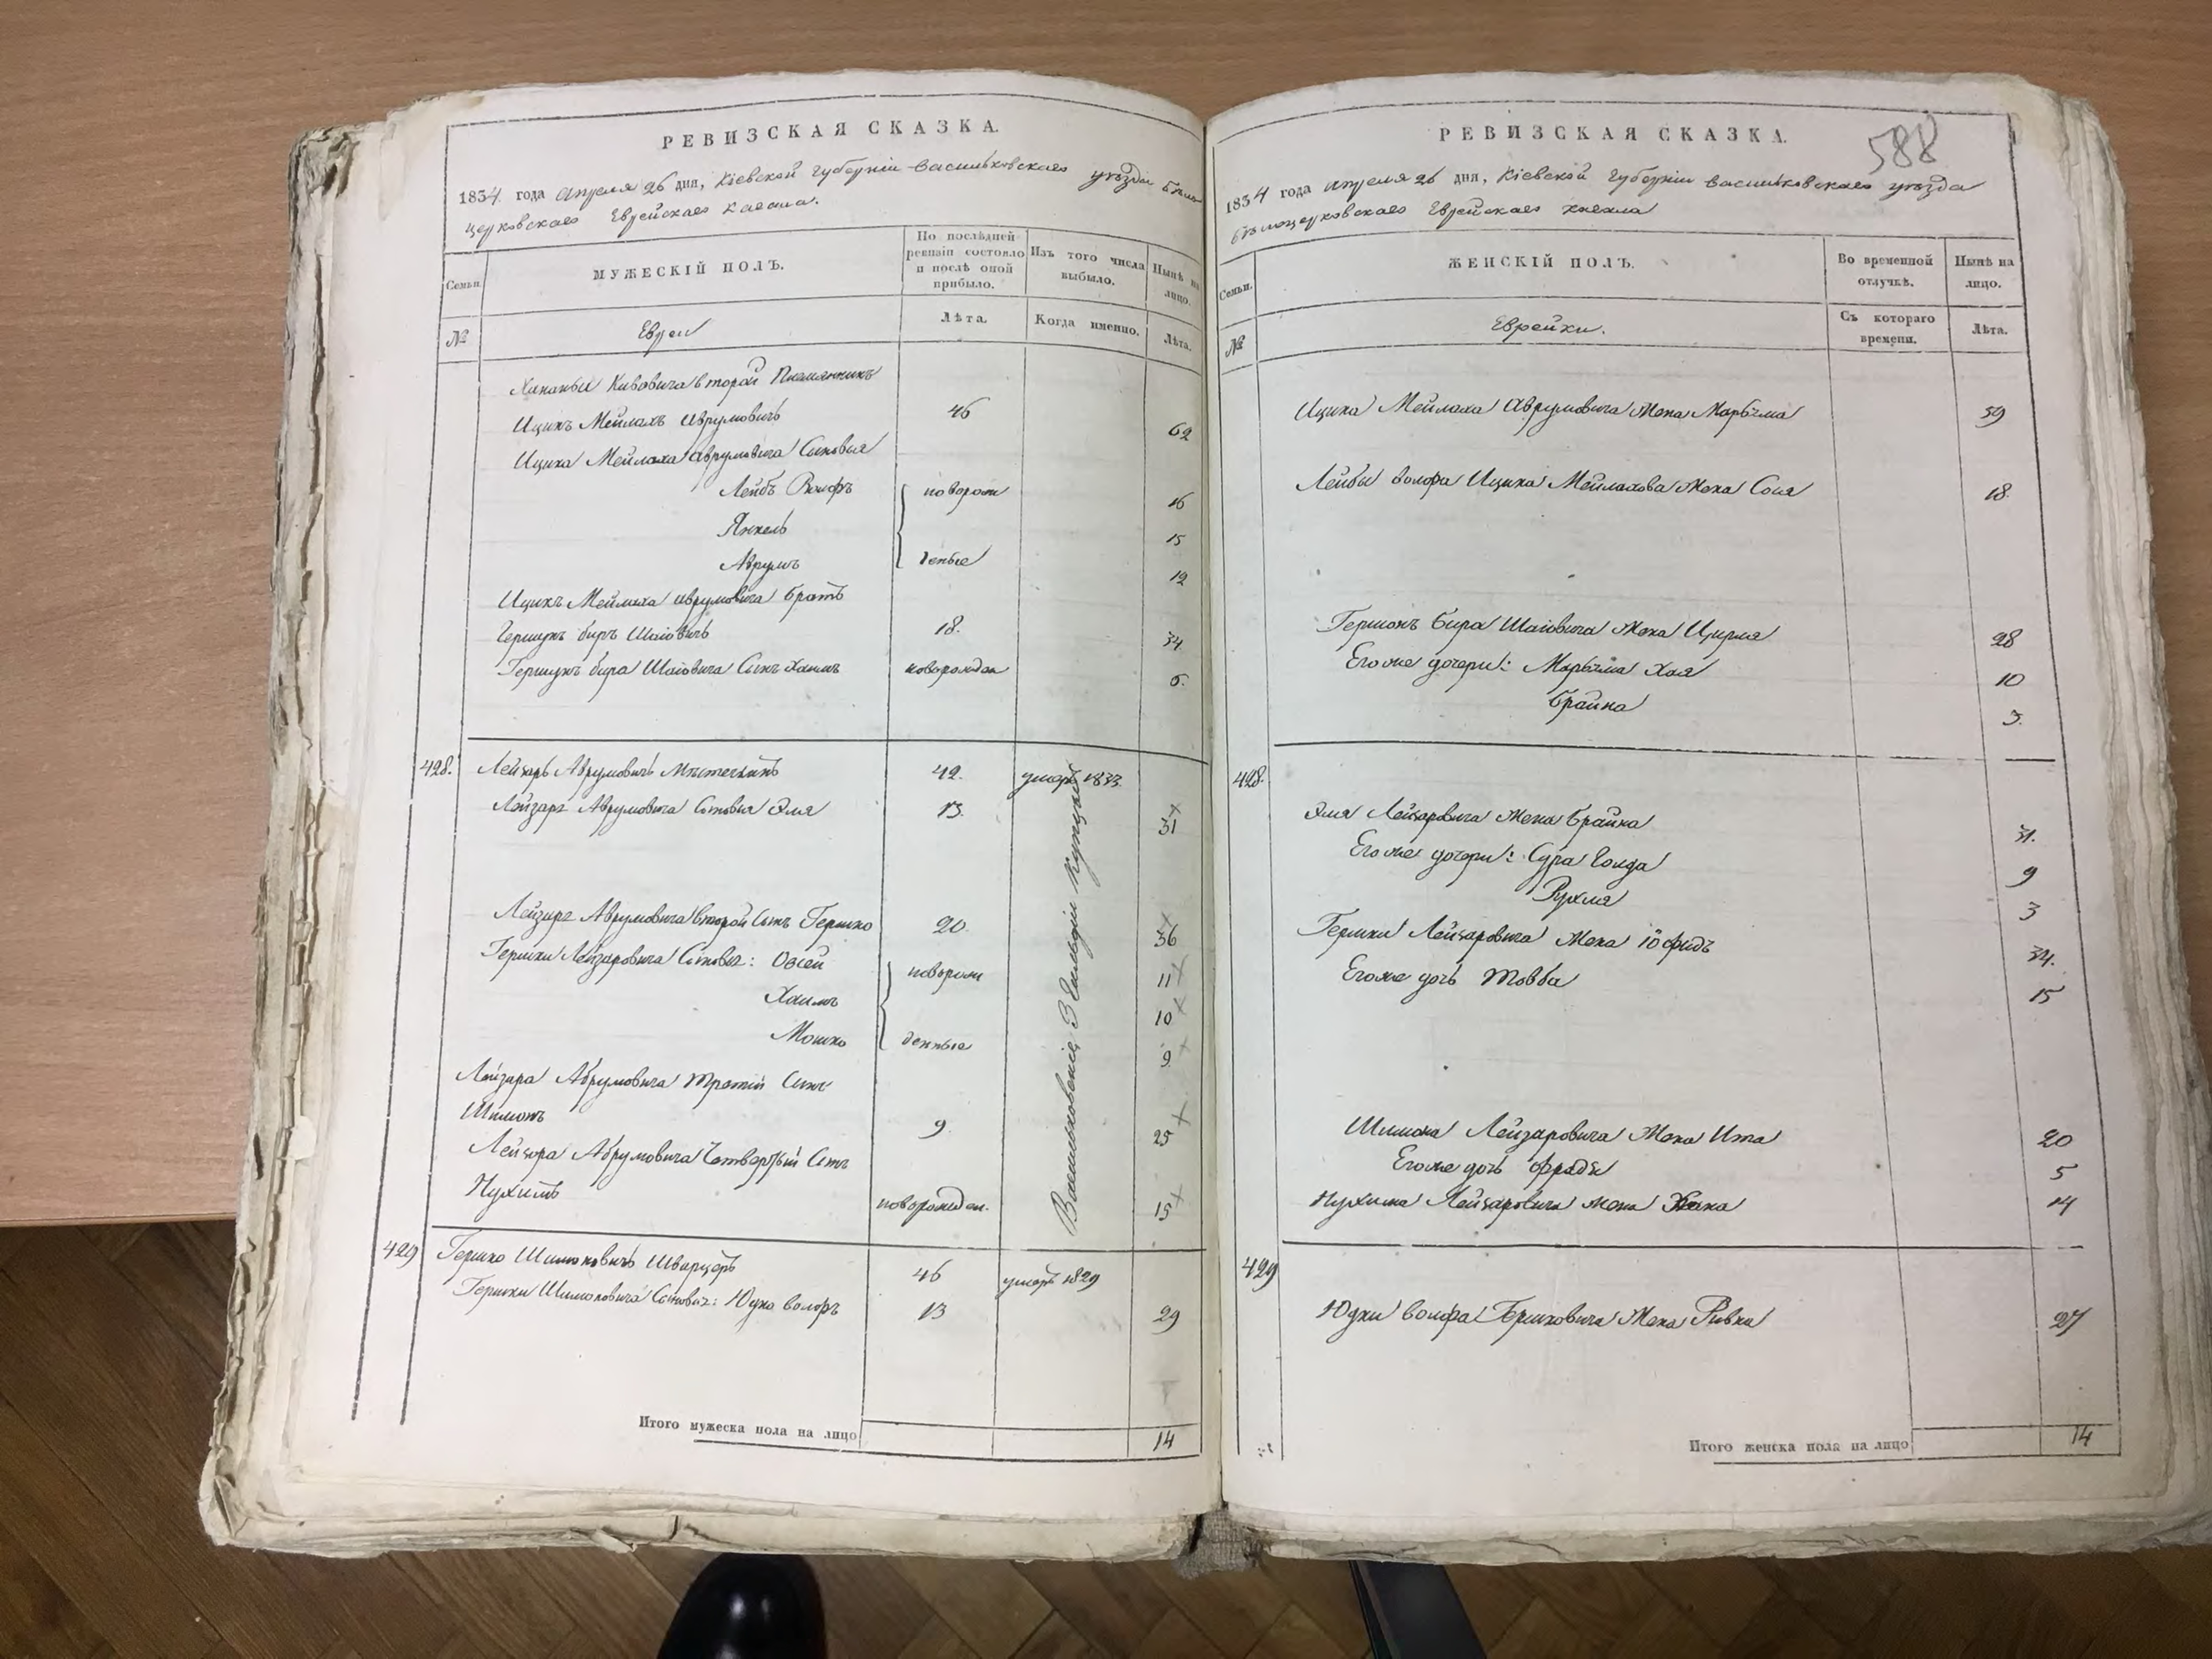 РЕВИЗСКАЯ СКАЗКА.
1834 года апреля 26 дня, Кіевской Губерніи Васильковскаго уѣзда Бѣло
церковскаго Еврейскаго Кагала.
Семьи.
МУЖЕСКІЙ ПОЛЪ.
По послѣдней ревизіи состояло и послѣ оной прибыло.
Изъ того числа выбыло.
Нынѣ на лицо.
№
Евреи
Лѣта.
Когда именно.
Лѣта.
Хананьи Кивовича второй Племянникъ
Ицикъ Мейлахъ Аврумовичъ 46 62
Ицика Мейлаха Аврумовича Сыновья
Лейбъ Волфъ новорож 16
Янкель 15
Аврумъ денные 12
Ицикъ Мейлаха Аврумовича братъ
Гершунъ биръ Шаіовичъ 18. 34
Гершунъ бира Шаіовича Сынъ Хаимъ новорожден 6.
428. Лейзаръ Аврумовичъ 42. умеръ 1833.
Лейзара Аврумовича Сыновья Эля 13. 31
Лейзара Аврумовича второй Сынъ Гершко 20. 36
Гершки Лейзаровича Сыновья: Овсей новорож 11
Хаимъ 10
Мошко денные 9
Лейзара Аврумовича третій Сынъ
Шимонъ 9 25
Лейзора Аврумовича Четвертый Сынъ
Нухимъ новорожден. 15
Васильковскіе 3 Гильдіи Купцы
429 Гершко Шимоновичъ Шварцеръ 46 умеръ 1829
Гершки Шимоновича Сыновья: Юдко Волфъ 13 29
Итого мужеска пола на лицо 14
РЕВИЗСКАЯ СКАЗКА.
588
1834 года апреля 26 дня, Кіевской Губерніи Васильковскаго уѣзда
бѣлоцерковскаго Еврейскаго кагала
Семьи.
ЖЕНСКІЙ ПОЛЪ.
Во временной отлучкѣ.
Нынѣ на лицо.
№
Еврейки.
Съ котораго времени.
Лѣта.
Ицика Мейлаха Аврумовича Жена Марьяма 59
Лейбы Волфа Ицика Мейлахова Жена Сося 18.
Гершонъ бира Шаіовича Жена Цирля 28
Его же дочери: Марьяма Хая 10
Брайна 3.
428.
Эля Лейзаровича Жена Брайна 31.
Его же дочери: Сура Голда 9
Рухля 3
Гершки Лейзаровича Жена 34.
Его же дочь Товба 15
Шимона Лейзаровича Жена Ита 20
Его же дочь Фрадя 5
Нухима Лейзаровича жена Хана 14
429
Юдки Волфа Гершковича Жена Ривка 27
Итого женска пола на лицо 14